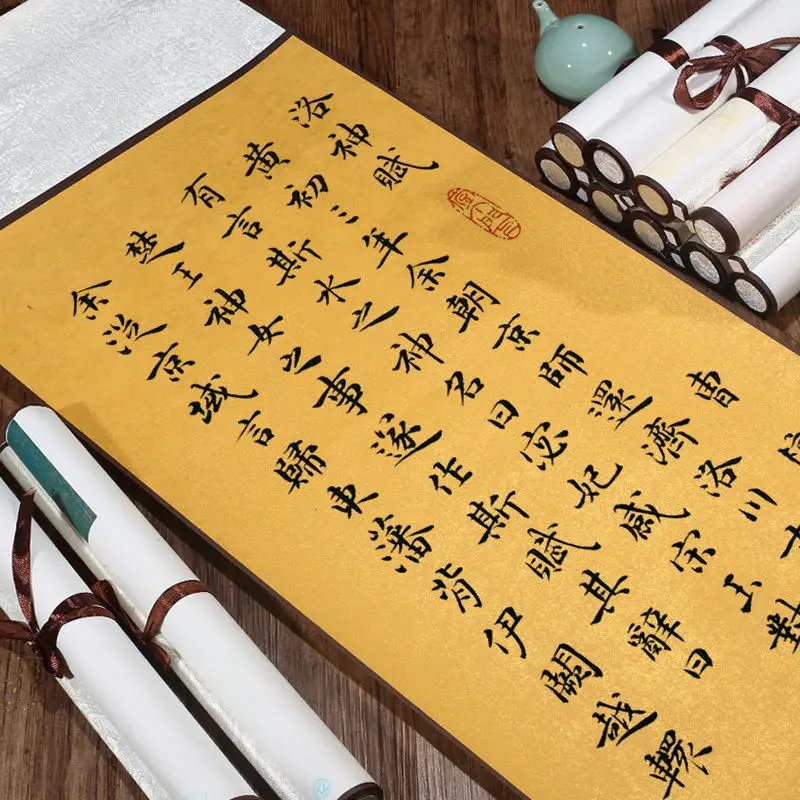 洛神賦 曹
黄初三年余朝京師還濟洛川古
有言斯水之神名曰宓妃感宋玉對
楚王神女之事遂作斯賦其辭曰
余從京域言歸東藩背伊闕越轘